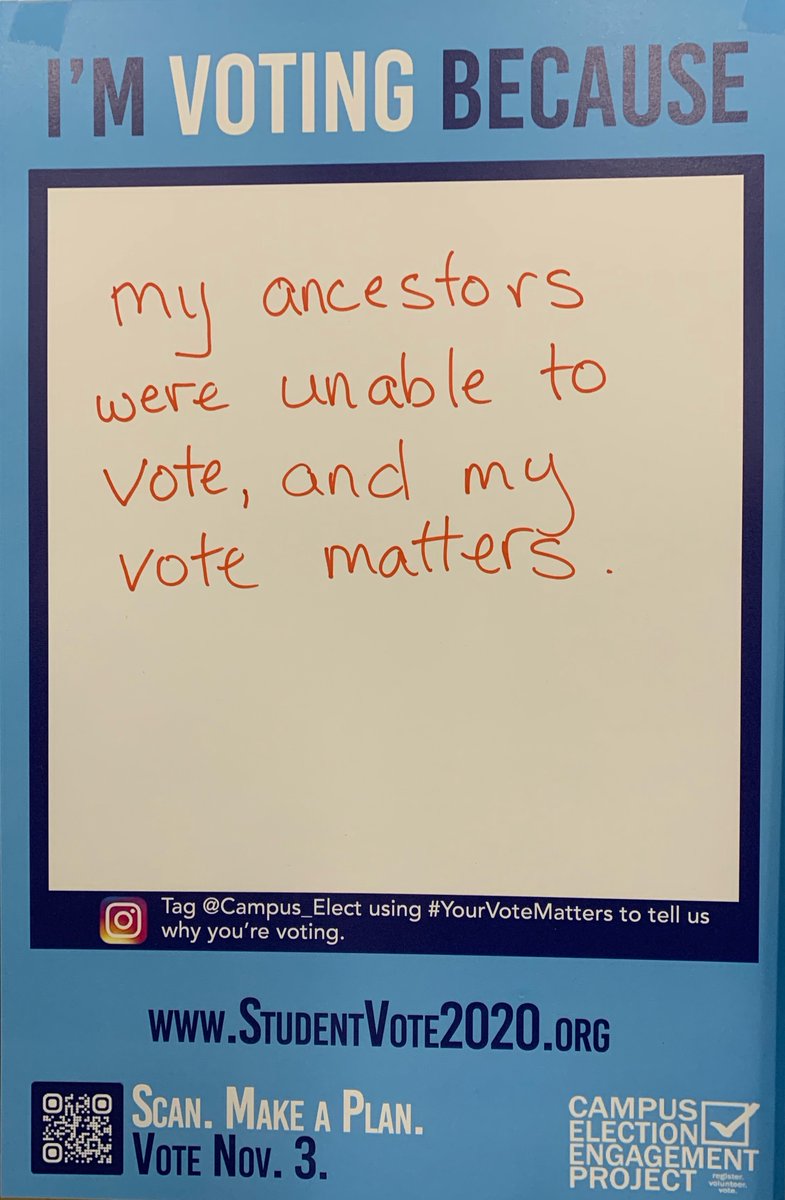 I'M VOTING BECAUSE
my ancestors
were unable to
vote, and my
vote matters.
Tag @Campus_Elect using #YourVoteMatters to tell us
why you're voting.
www.StudentVote2020.org
Scan. Make a Plan.
Vote Nov. 3.
CAMPUS
ELECTION
ENGAGEMENT
PROJECT
register.
volunteer.
vote.